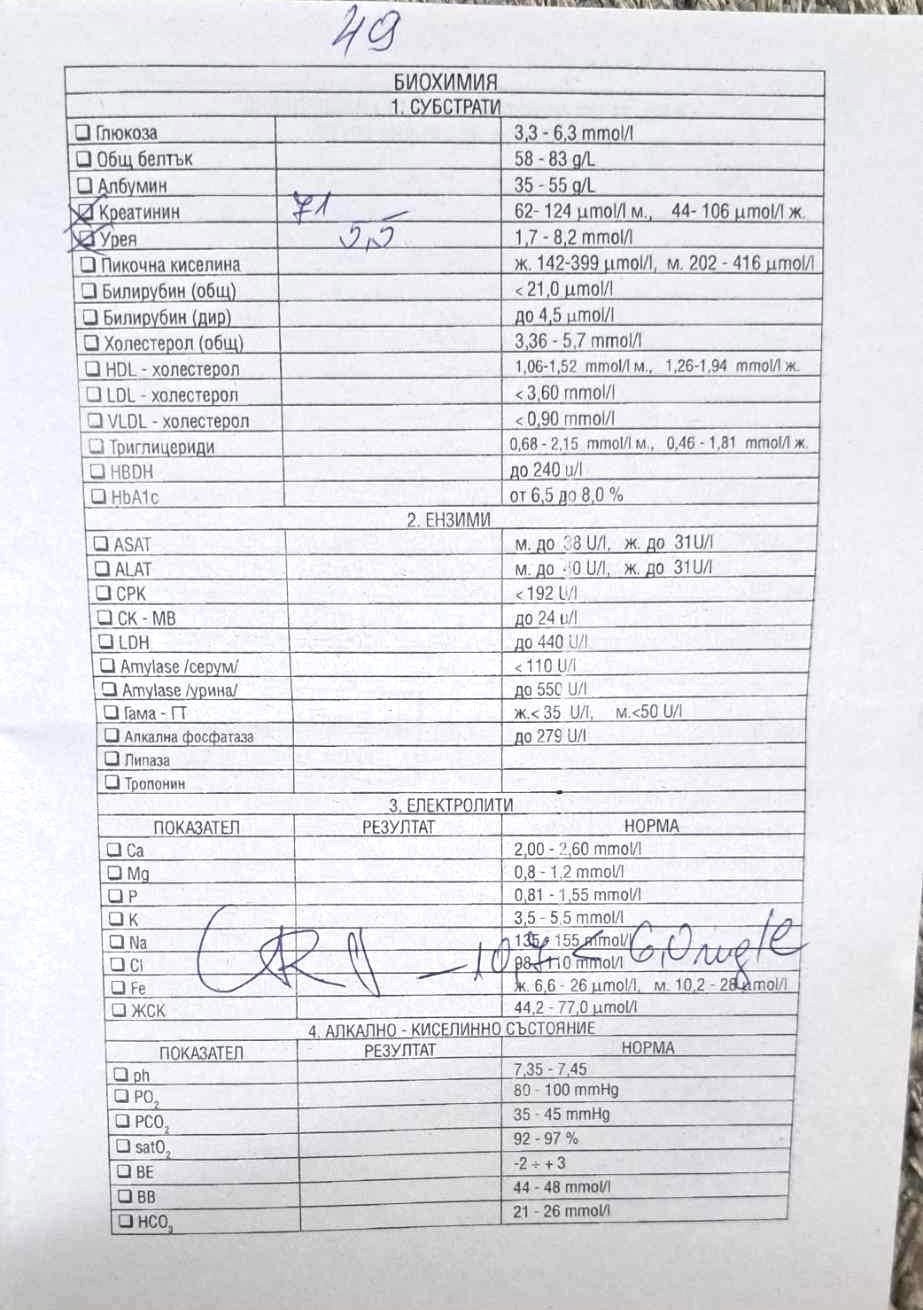 49
БИОХИМИЯ
1. СУБСТРАТИ
Глюкоза 3,3 - 6,3 mmol/l
Общ белтък 58 - 83 g/L
Албумин 35 - 55 g/L
Креатинин 71 62- 124 µmol/l м., 44- 106 µmol/l ж.
Урея 5,5 1,7 - 8,2 mmol/l
Пикочна киселина ж. 142-399 µmol/l, м. 202 - 416 µmol/l
Билирубин (общ) < 21,0 µmol/l
Билирубин (дир) до 4,5 µmol/l
Холестерол (общ) 3,36 - 5,7 mmol/l
HDL - холестерол 1,06-1,52 mmol/l м., 1,26-1,94 mmol/l ж.
LDL - холестерол < 3,60 mmol/l
VLDL - холестерол < 0,90 mmol/l
Триглицериди 0,68 - 2,15 mmol/l м., 0,46 - 1,81 mmol/l ж.
HBDH до 240 u/l
HbA1c от 6,5 до 8,0 %
2. ЕНЗИМИ
ASAT м. до 38 U/l, ж. до 31U/l
ALAT м. до U/l, ж. до 31U/l
CPK < 192 U/l
CK - MB до 24 u/l
LDH до 440 U/l
Amylase /серум/ < 110 U/l
Amylase /урина/ до 550 U/l
Гама - ГТ ж.< 35 U/l, м.<50 U/l
Алкална фосфатаза до 279 U/l
Липаза
Тропонин
3. ЕЛЕКТРОЛИТИ
ПОКАЗАТЕЛ РЕЗУЛТАТ НОРМА
Ca 2,00 - 2,60 mmol/l
Mg 0,8 - 1,2 mmol/l
P 0,81 - 1,55 mmol/l
K 3,5 - 5,5 mmol/l
Na 135 - 155 mmol/l
Cl 98 - 110 mmol/l
CRP < 6,0 mg/l
Fe ж. 6,6 - 26 µmol/l, м. 10,2 - 28 µmol/l
ЖСК 44,2 - 77,0 µmol/l
4. АЛКАЛНО - КИСЕЛИННО СЪСТОЯНИЕ
ПОКАЗАТЕЛ РЕЗУЛТАТ НОРМА
ph 7,35 - 7,45
PO2 80 - 100 mmHg
PCO2 35 - 45 mmHg
satO2 92 - 97 %
BE -2 ÷ + 3
BB 44 - 48 mmol/l
HCO3 21 - 26 mmol/l